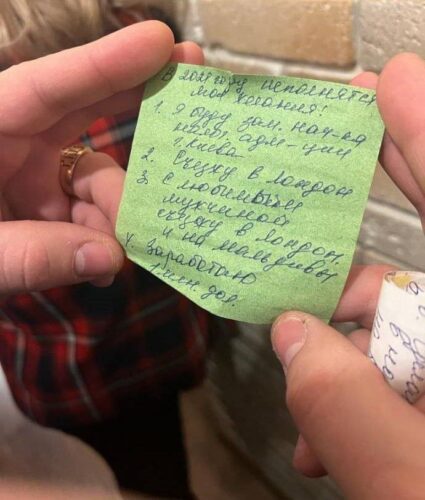 В 2021 году исполнятся
мои желания:
1. Я буду зам. нач-ка
адм-ции
г. Киева
2. Съезжу в Лондон
3. С любимым
мужчиной
съезжу в Лондон
и на мальдивы
4. Заработаю
1 млн дол.